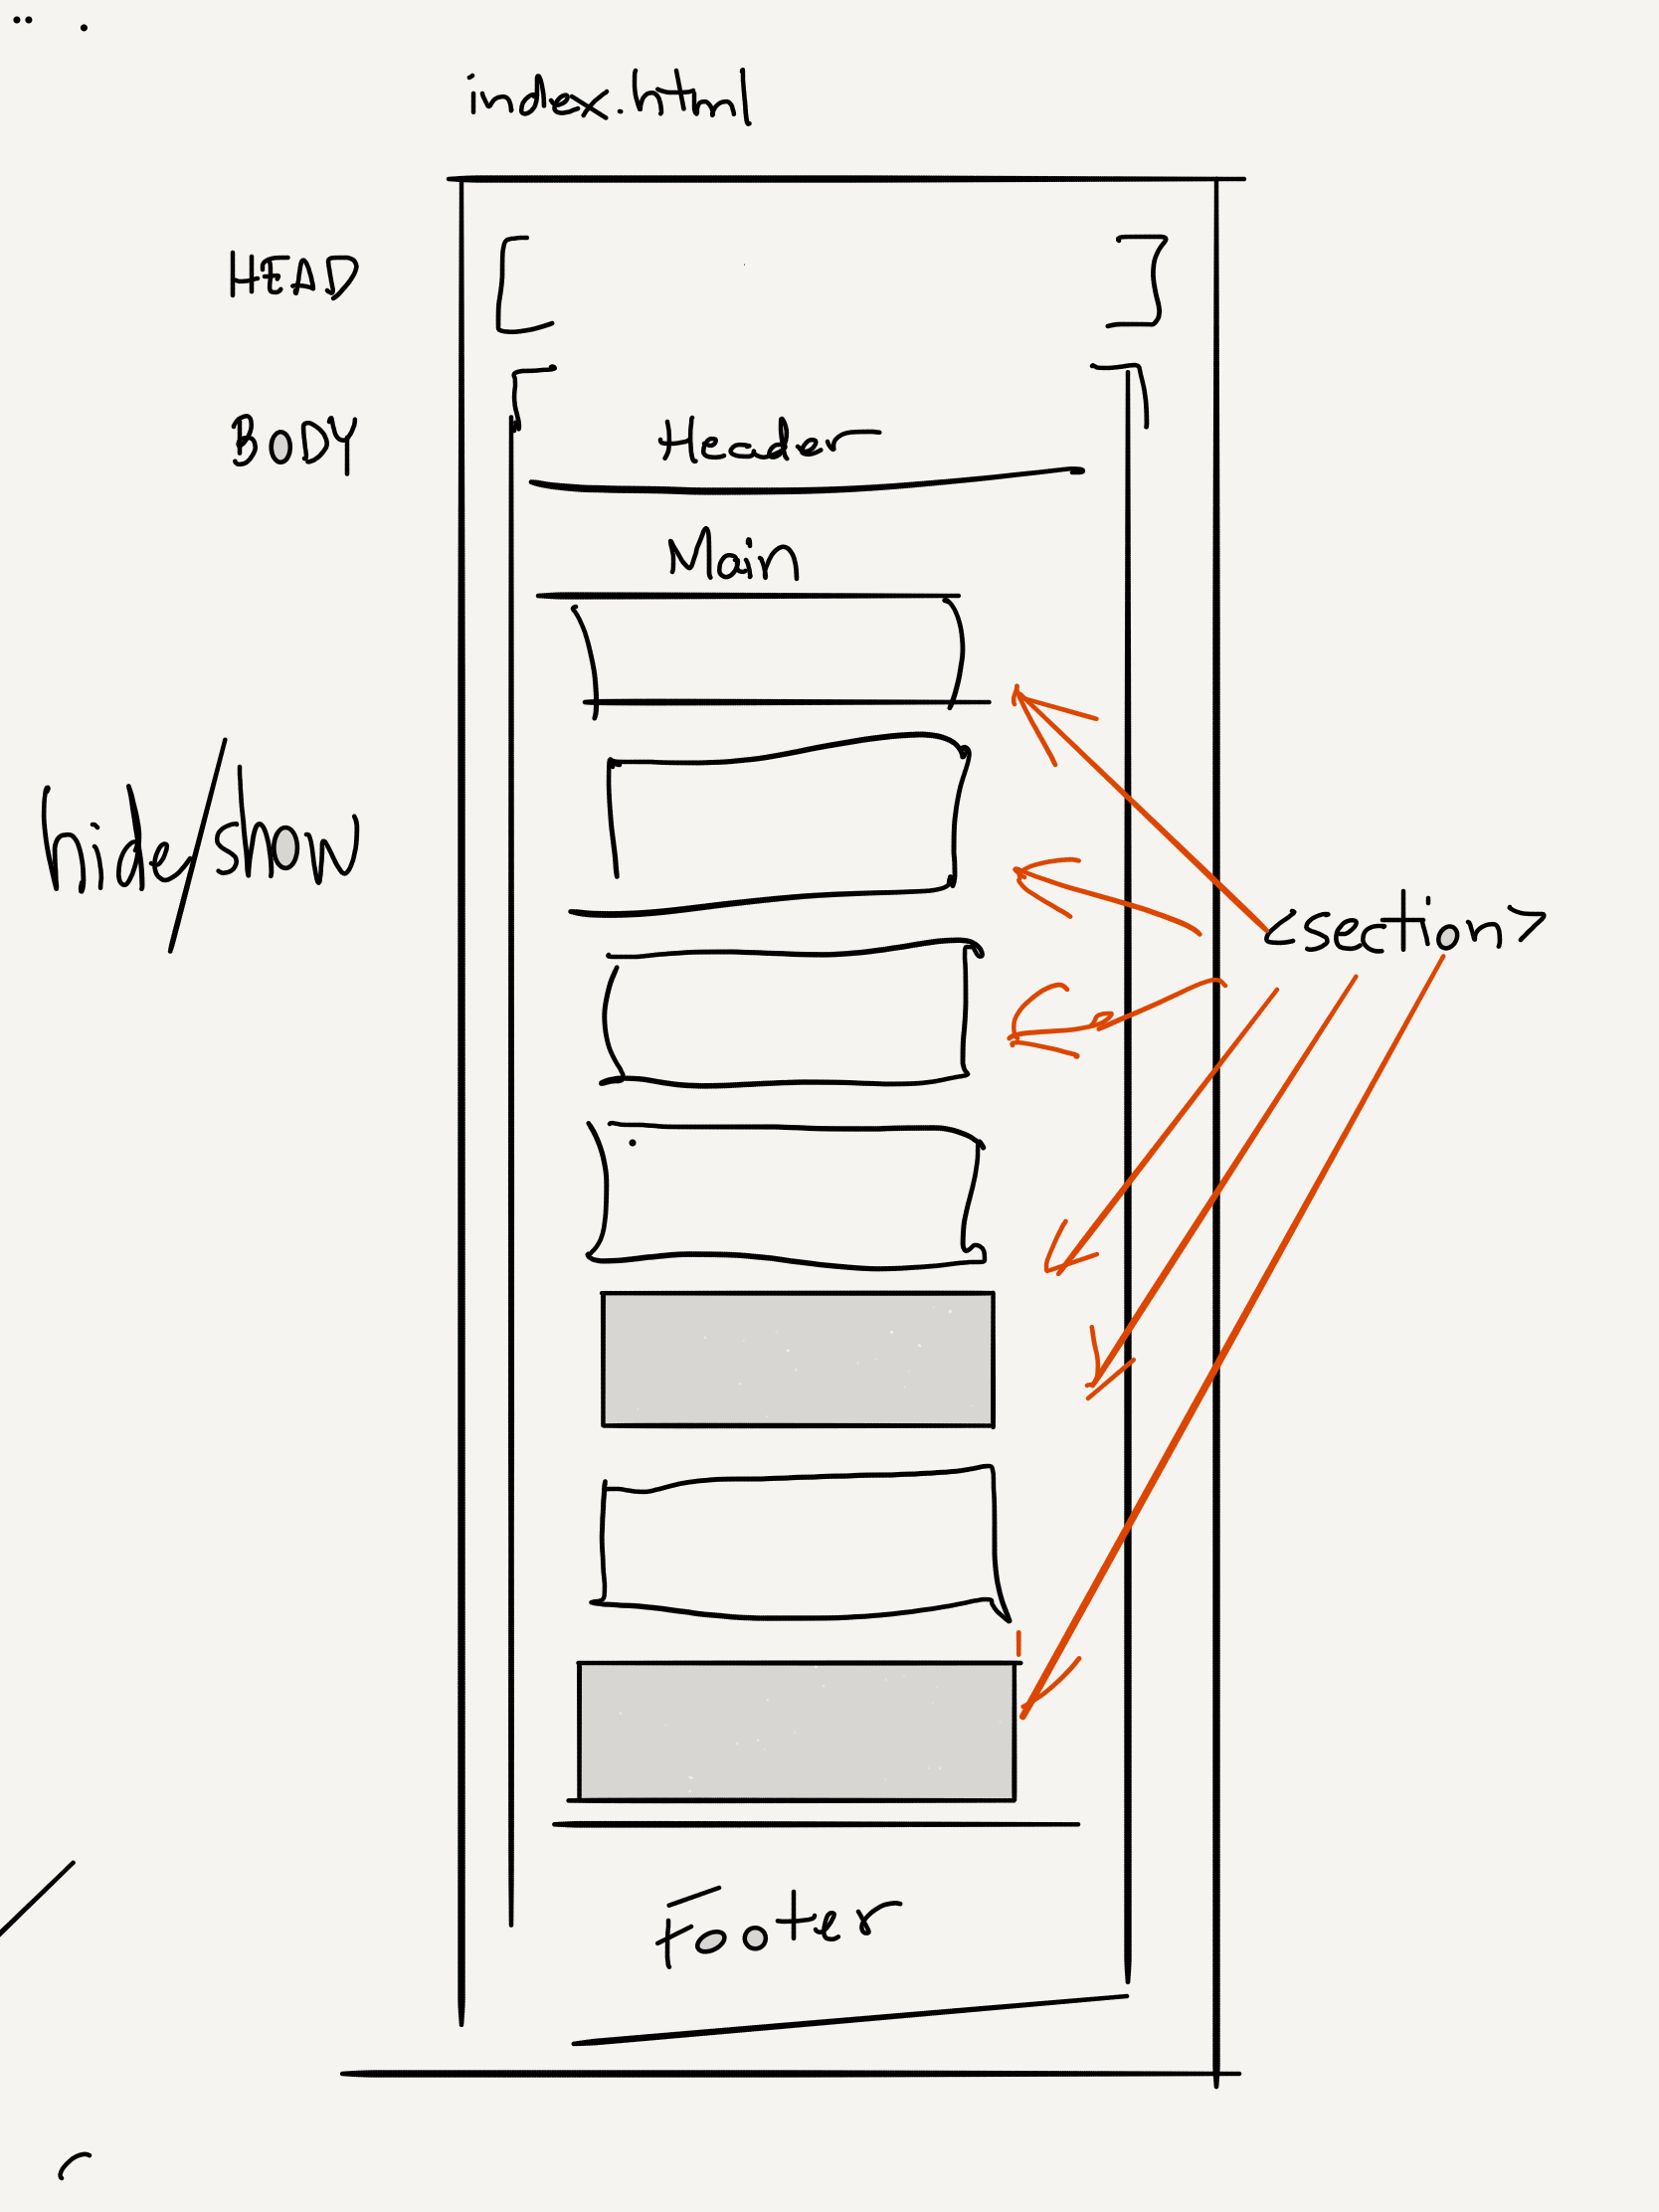 index.html
HEAD
BODY
Header
Main
hide/show
<section>
Footer